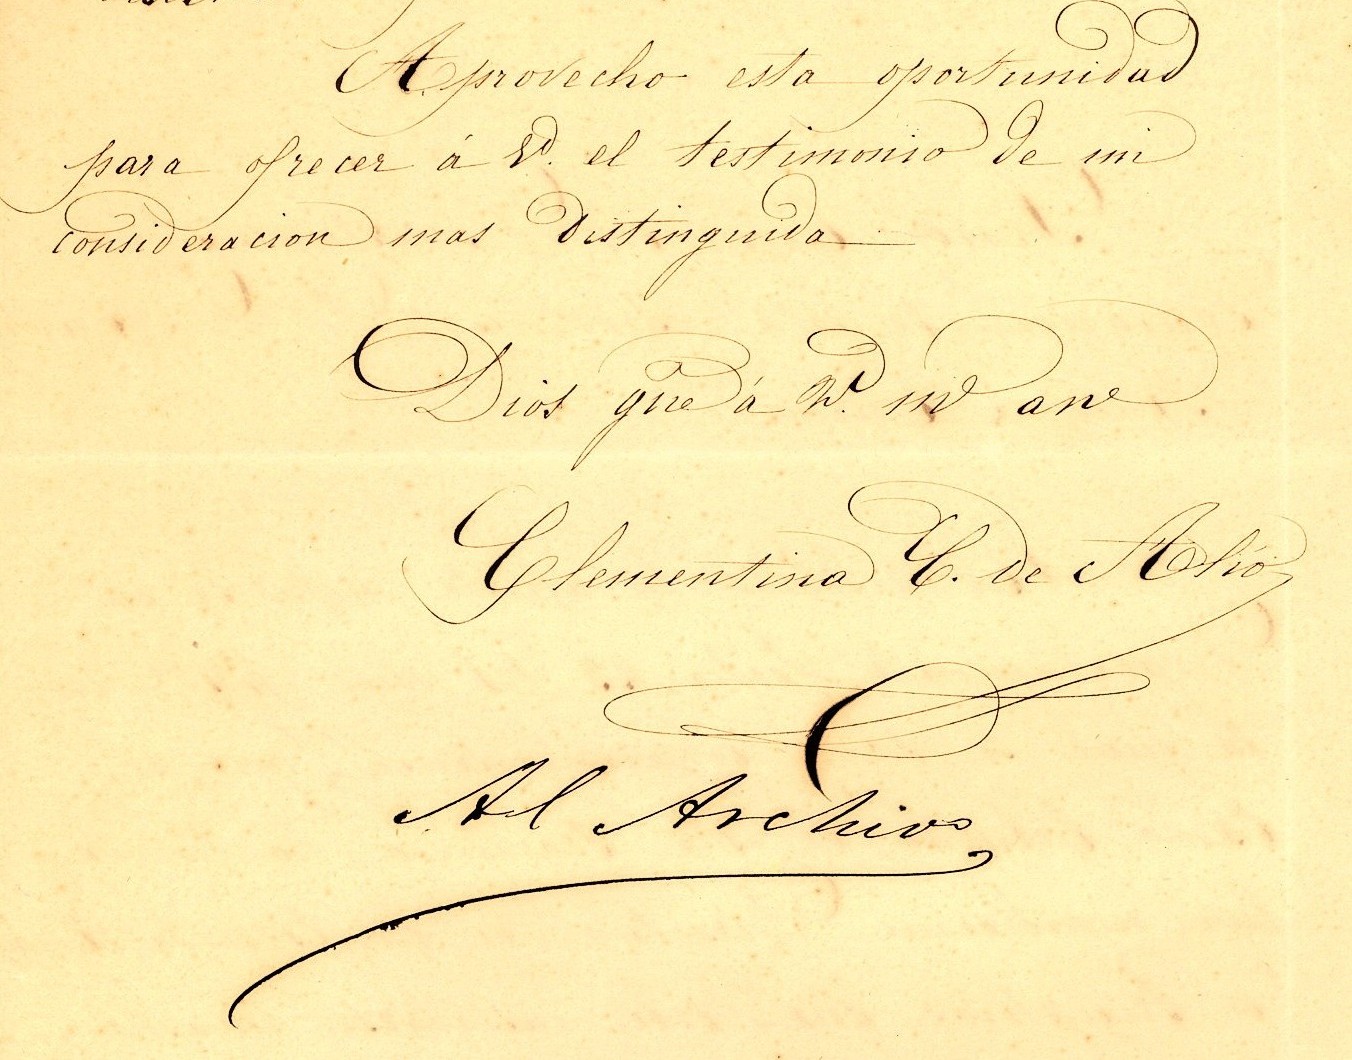 Aprovecho esta oportunidad
para ofrecer á Vd. el testimonio de mi
consideracion mas distinguida
Dios gūe á Vd. ms ans
Clementina C. de Alió
Al Archivo